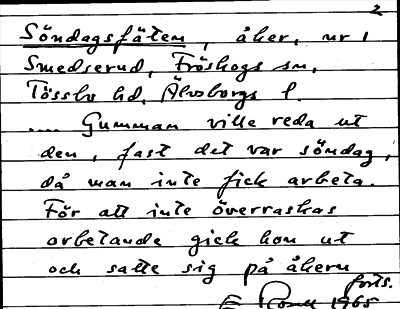 2
Söndagsfäten, åker, nr 1
Smedserud, Fröskogs sn,
Tösslo hd, Älvsborgs l.
.... Gumman ville reda ut
den, fast det var söndag,
då man inte fick arbeta.
För att inte överraskas
arbetande gick hon ut
och satte sig på åkern
forts.
1965